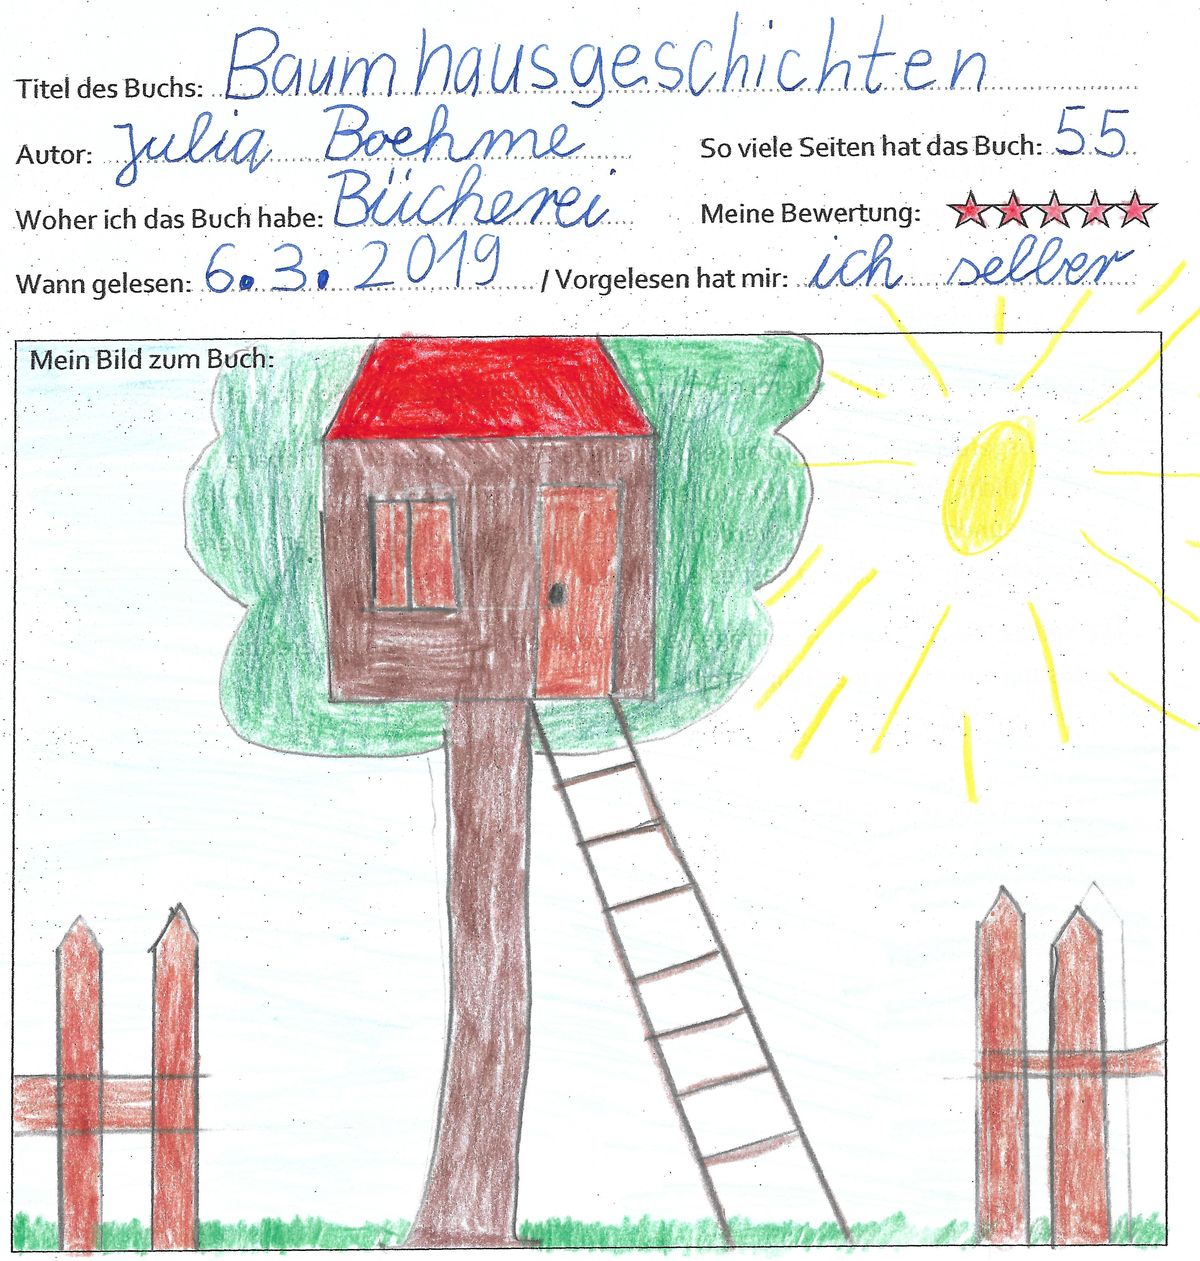 Titel des Buchs: Baumhausgeschichten
Autor: Julia Boehme So viele Seiten hat das Buch: 55
Woher ich das Buch habe: Bücherei Meine Bewertung:
Wann gelesen: 6.3.2019 / Vorgelesen hat mir: ich selber
Mein Bild zum Buch: